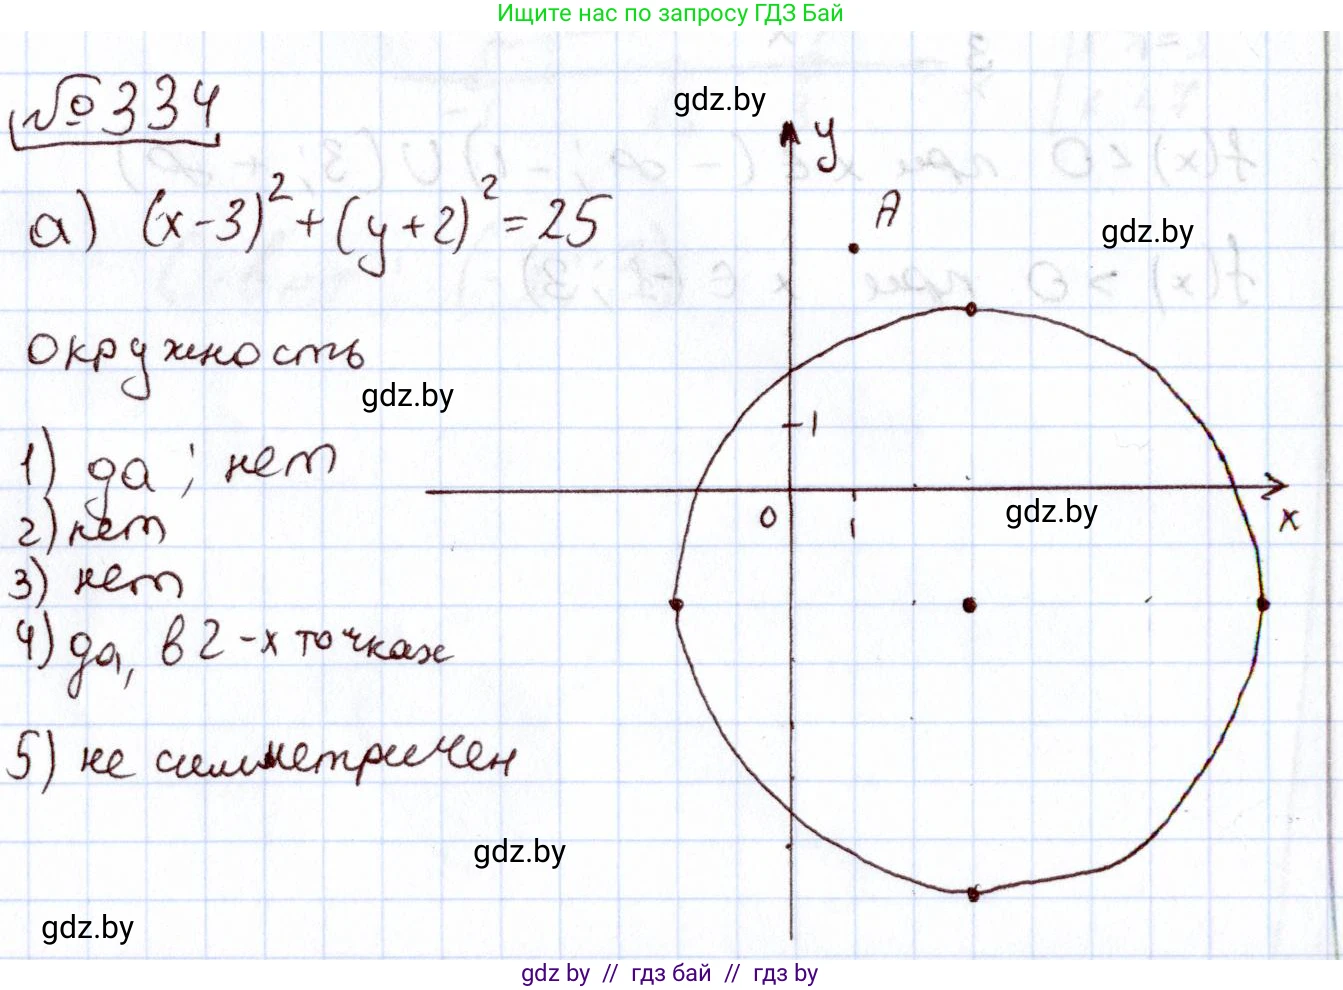 Ищите нас по запросу ГДЗ Бай
№334
gdz.by
y
A
а) (x-3)²+(y+2)²=25
gdz.by
окружность
gdz.by
1
1) да; нет
0
1
gdz.by
x
2) нет
3) нет
4) да, в 2-х точках
5) не симметричен
gdz.by
gdz.by
gdz by // гдз бай // гдз by